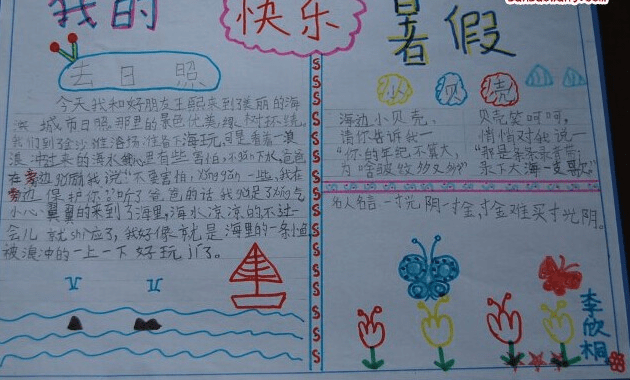 我的
快乐
暑假
去日照
今天我和好朋友王熙来到了美丽的海
滨城市日照,那里的景色优美,绿树环绕。
我们到金沙滩浴场准备下海玩,可是看着一浪
浪冲过来的海水,心里有些害怕,不敢下水,爸爸
在旁边鼓励我说:"不要害怕,勇敢一些,我在
旁边保护你。"听了爸爸的话我鼓足了勇气
小心翼翼的来到了海里,海水凉凉的不过一
会儿就shì应了,我好像就是海里的一条小鱼
被浪冲的一上一下好玩儿了。
小贝壳
海边小贝壳,
请你告诉我一
"你的年纪不算大,
为啥皱纹多又多?"
贝壳笑呵呵,
悄悄对我说一
"那是
永下大海一支歌。"
名人名言:一寸光阴一寸金,寸金难买寸光阴。
李欣桐